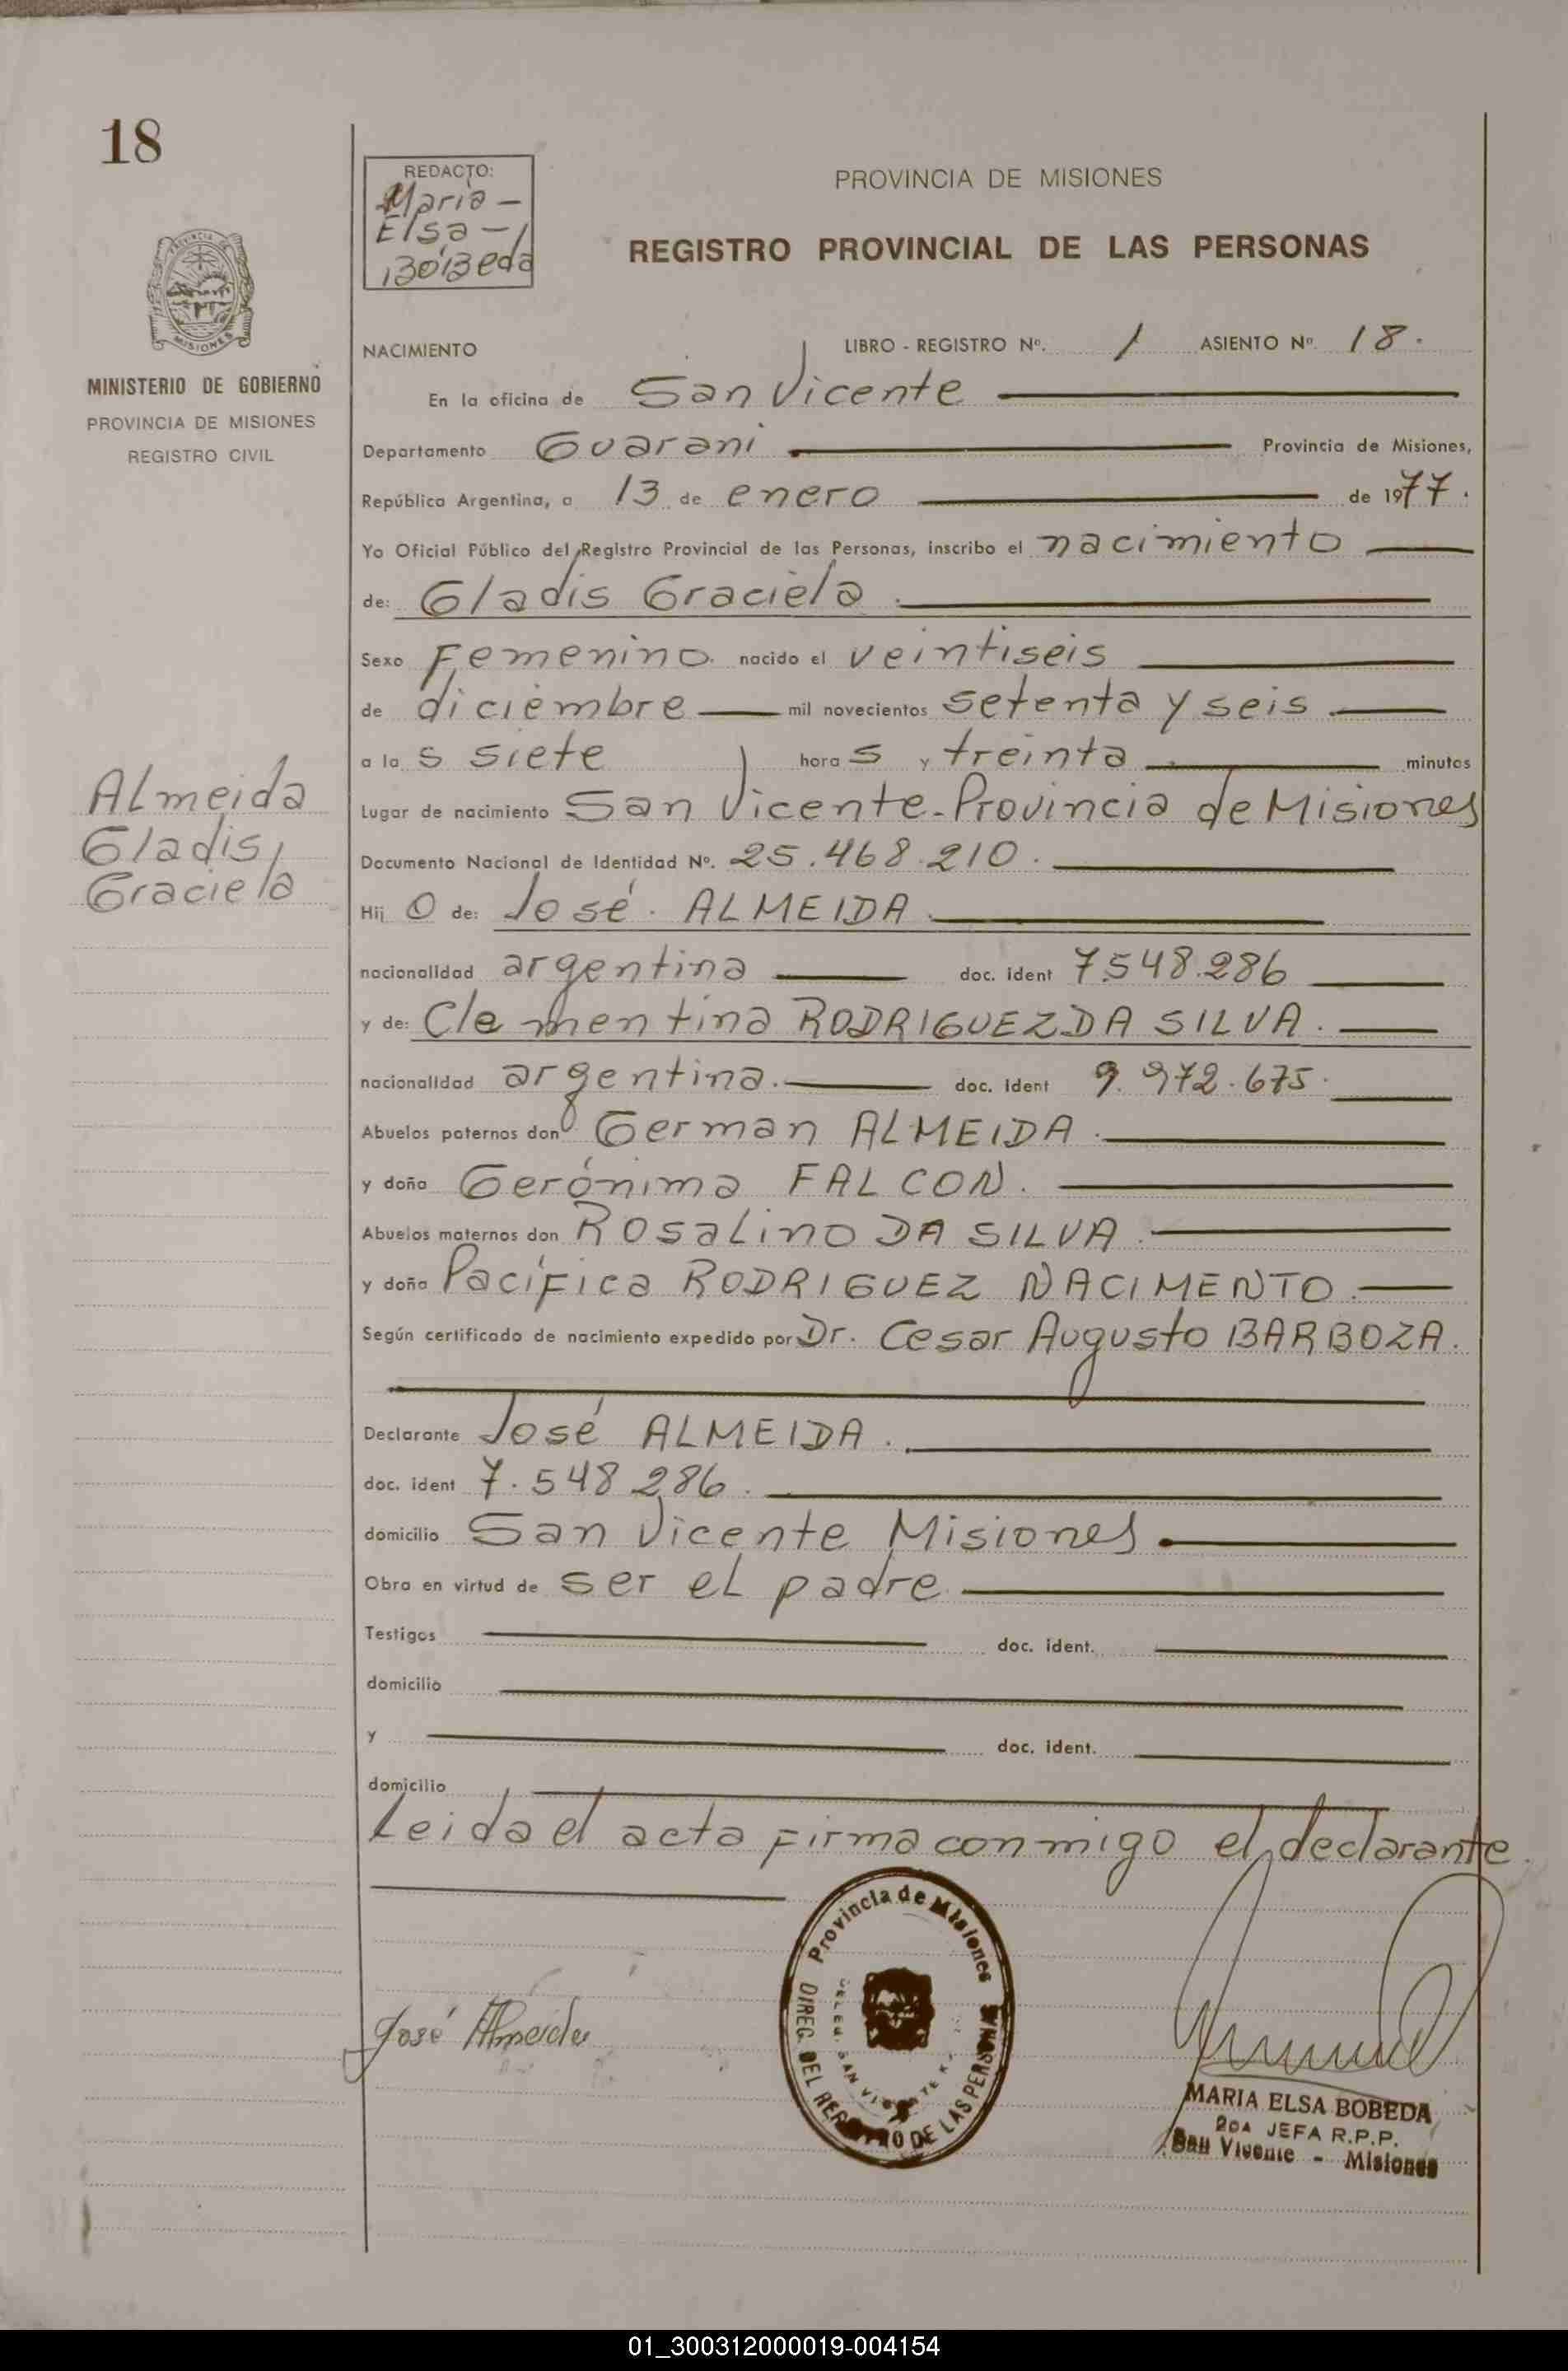 18
REDACTO:
Maria -
Elsa -
BOBEDA
PROVINCIA DE MISIONES
REGISTRO PROVINCIAL DE LAS PERSONAS
PROVINCIA DE
MISIONES
MINISTERIO DE GOBIERNO
PROVINCIA DE MISIONES
REGISTRO CIVIL
NACIMIENTO LIBRO - REGISTRO Nº. 1 ASIENTO Nº 18.
En la oficina de San Vicente
Departamento Guarani Provincia de Misiones,
República Argentina, a 13 de enero de 1977.
Yo Oficial Público del Registro Provincial de las Personas, inscribo el nacimiento
de: Gladis Graciela.
Sexo Femenino. nacido el veintiseis
de diciembre mil novecientos setenta y seis
a las siete horas y treinta minutos
Almeida
Gladis
Graciela
Lugar de nacimiento San Vicente-Provincia de Misiones
Documento Nacional de Identidad Nº. 25.468.210.
Hijo de: José. ALMEIDA.
nacionalidad argentina doc. ident 7.548.286
y de: Clementina RODRIGUEZ DA SILVA.
nacionalidad argentina. doc. ident 9.972.675.
Abuelos paternos don German ALMEIDA.
y doña Gerónima FALCON.
Abuelos maternos don Rosalino DA SILVA.
y doña Pacífica RODRIGUEZ NACIMENTO.
Según certificado de nacimiento expedido por Dr. Cesar Augusto BARBOZA.
Declarante José ALMEIDA.
doc. ident 7.548.286.
domicilio San Vicente Misiones
Obra en virtud de ser el padre.
Testigos doc. ident.
domicilio
y doc. ident.
domicilio
Leida el acta firma conmigo el declarante.
José Almeida
Provincia de Misiones
DIREC. DEL REGISTRO DE LAS PERSONAS
MARIA ELSA BOBEDA
2DA JEFA R.P.P.
San Vicente - Misiones
01_300312000019-004154